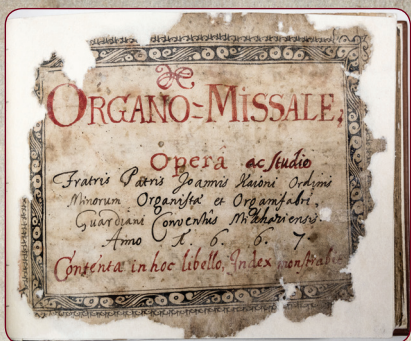 ORGANO=MISSALE;
Opera ac studio
Fratris Patris Joannis Kaioni Ordinis
Minorum Organistæ et Organifabri.
Guardiani Conventûs Mikhaziensis.
Anno 1. 6. 6. 7
Contentæ in hoc libello, Index monstrabit